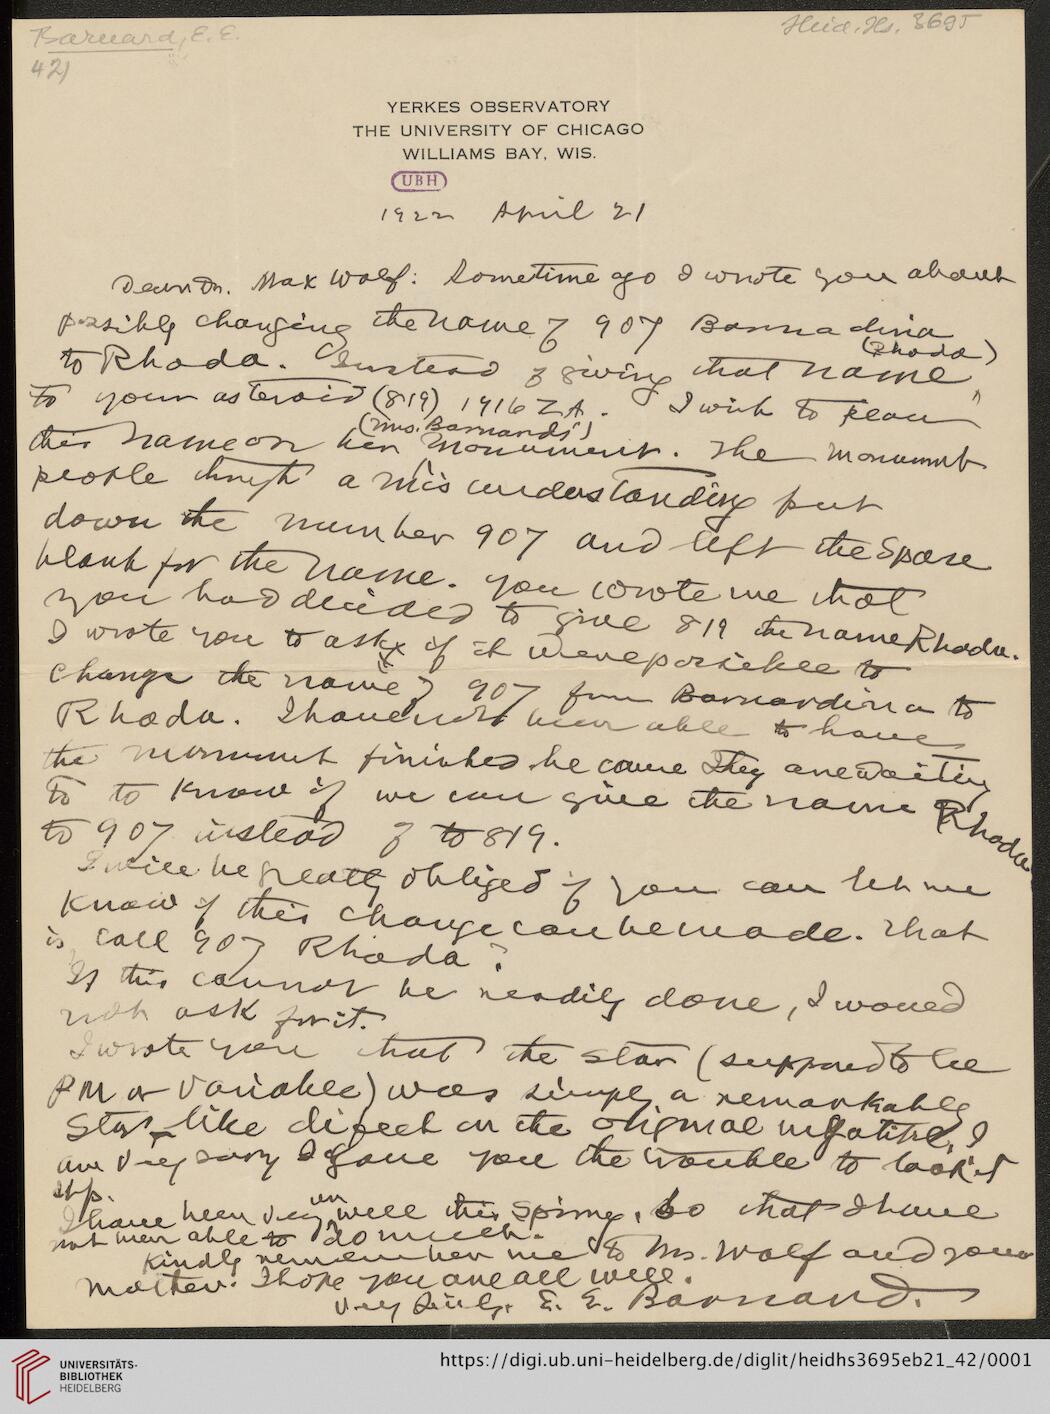 Barnard, E. E.
Heid. Hs. 3695
42)
YERKES OBSERVATORY
THE UNIVERSITY OF CHICAGO
WILLIAMS BAY, WIS.
UBH
1922 April 21
Dear Dr. Max Wolf: Sometime ago I wrote you about
possibly changing the name of 907 Barnardina
to Rhoda. Instead of giving that name (Rhoda)
to your asteroid (819) 1916 ZA. I wish to place
this name on her (Mrs. Barnard's) monument. The monument
people through a misunderstanding put
down the number 907 and left the space
blank for the name. You wrote me that
you had decided to give 819 the name Rhoda.
I wrote you to ask if it were possible to
change the name of 907 from Barnardina to
Rhoda. I have not been able to have
the monument finished because they are waiting
to to know if we can give the name Rhoda
to 907 instead of to 819.
I will be greatly obliged if you can let me
know if this change can be made. That
is, call 907 Rhoda?
If this cannot be readily done, I would
not ask for it.
I wrote you that the star (supposed to be
PM or variable) was simply a remarkable
star-like defect on the original negative. I
am very sorry I gave you the trouble to look it
up.
I have been very unwell this spring, so that I have
not been able to do much.
Kindly remember me to Mrs. Wolf and your
mother. I hope you are all well.
Very Sincly. E. E. Barnard.
UNIVERSITÄTS-
BIBLIOTHEK
HEIDELBERG
https://digi.ub.uni-heidelberg.de/diglit/heidhs3695eb21_42/0001